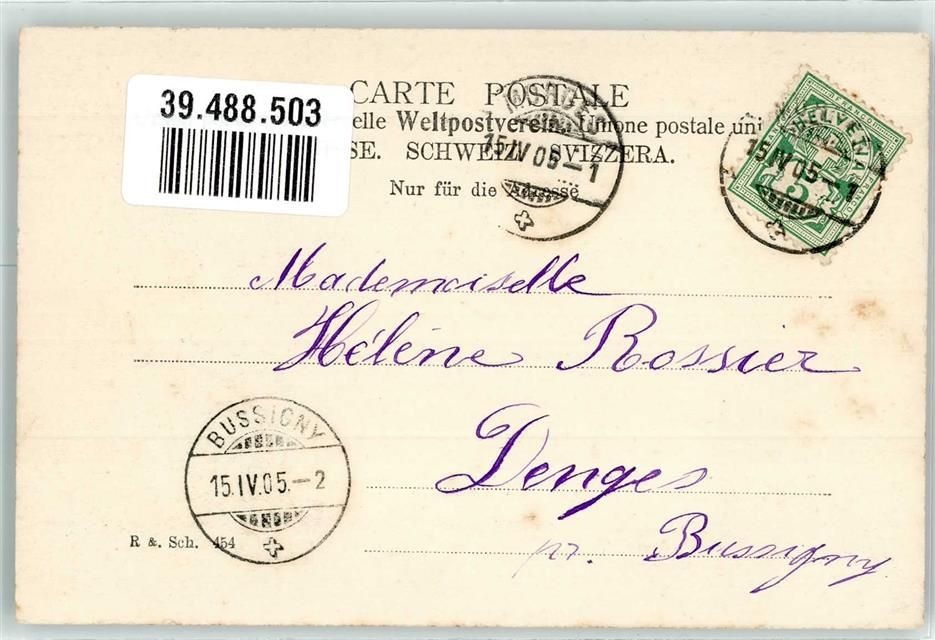 39.488.503
CARTE POSTALE
elle Weltpostverein. Unione postale uni
SE. SCHWEIZ. SVIZZERA.
Nur für die Adresse
15.IV.05.—1
HELVETIA
15.IV.05.—1
5
Mademoiselle
Hélène Rossier
Denges
pr. Bussigny
BUSSIGNY
15.IV.05.—2
R &. Sch. 454